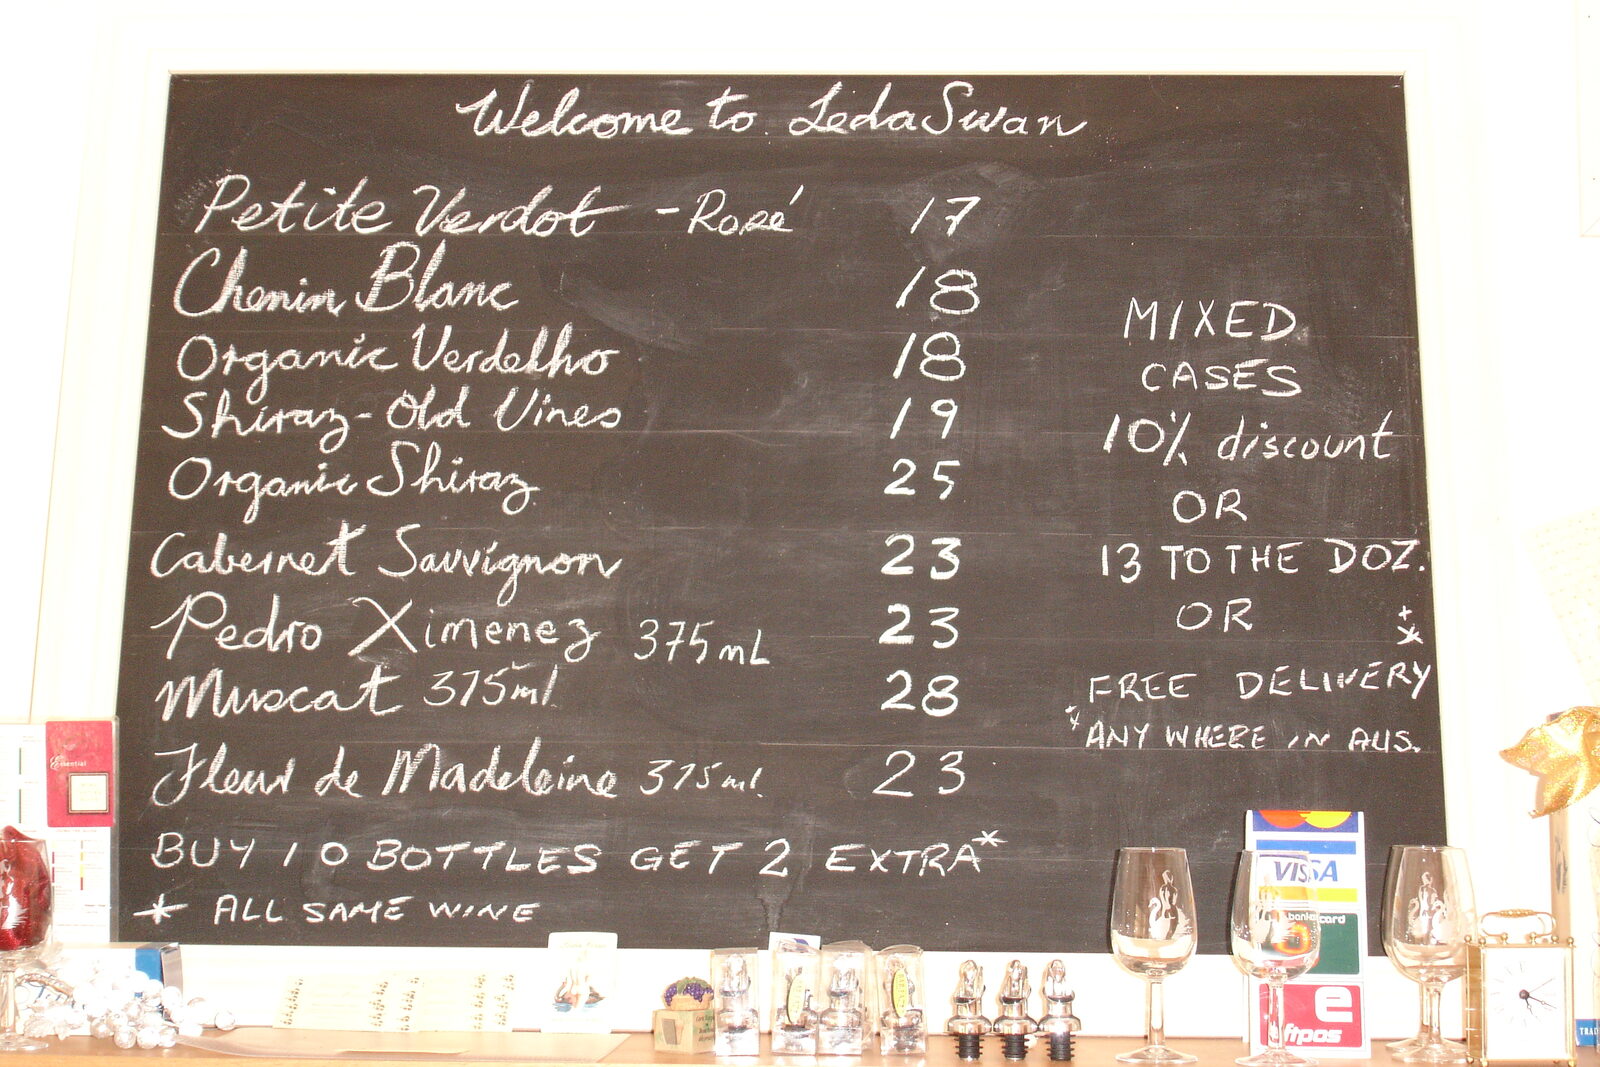 Welcome to LedaSwan
Petite Verdot - Rosé 17
Chenin Blanc 18
Organic Verdelho 18
Shiraz - Old Vines 19
Organic Shiraz 25
Cabernet Sauvignon 23
Pedro Ximenez 375mL 23
Muscat 375ml 28
Fleur de Madeleine 375ml 23
BUY 10 BOTTLES GET 2 EXTRA*
* ALL SAME WINE
MIXED
CASES
10% discount
OR
13 TO THE DOZ.
OR
*
FREE DELIVERY
* ANY WHERE IN AUS.
Essential
VISA
bankcard
e
eftpos
TRAD